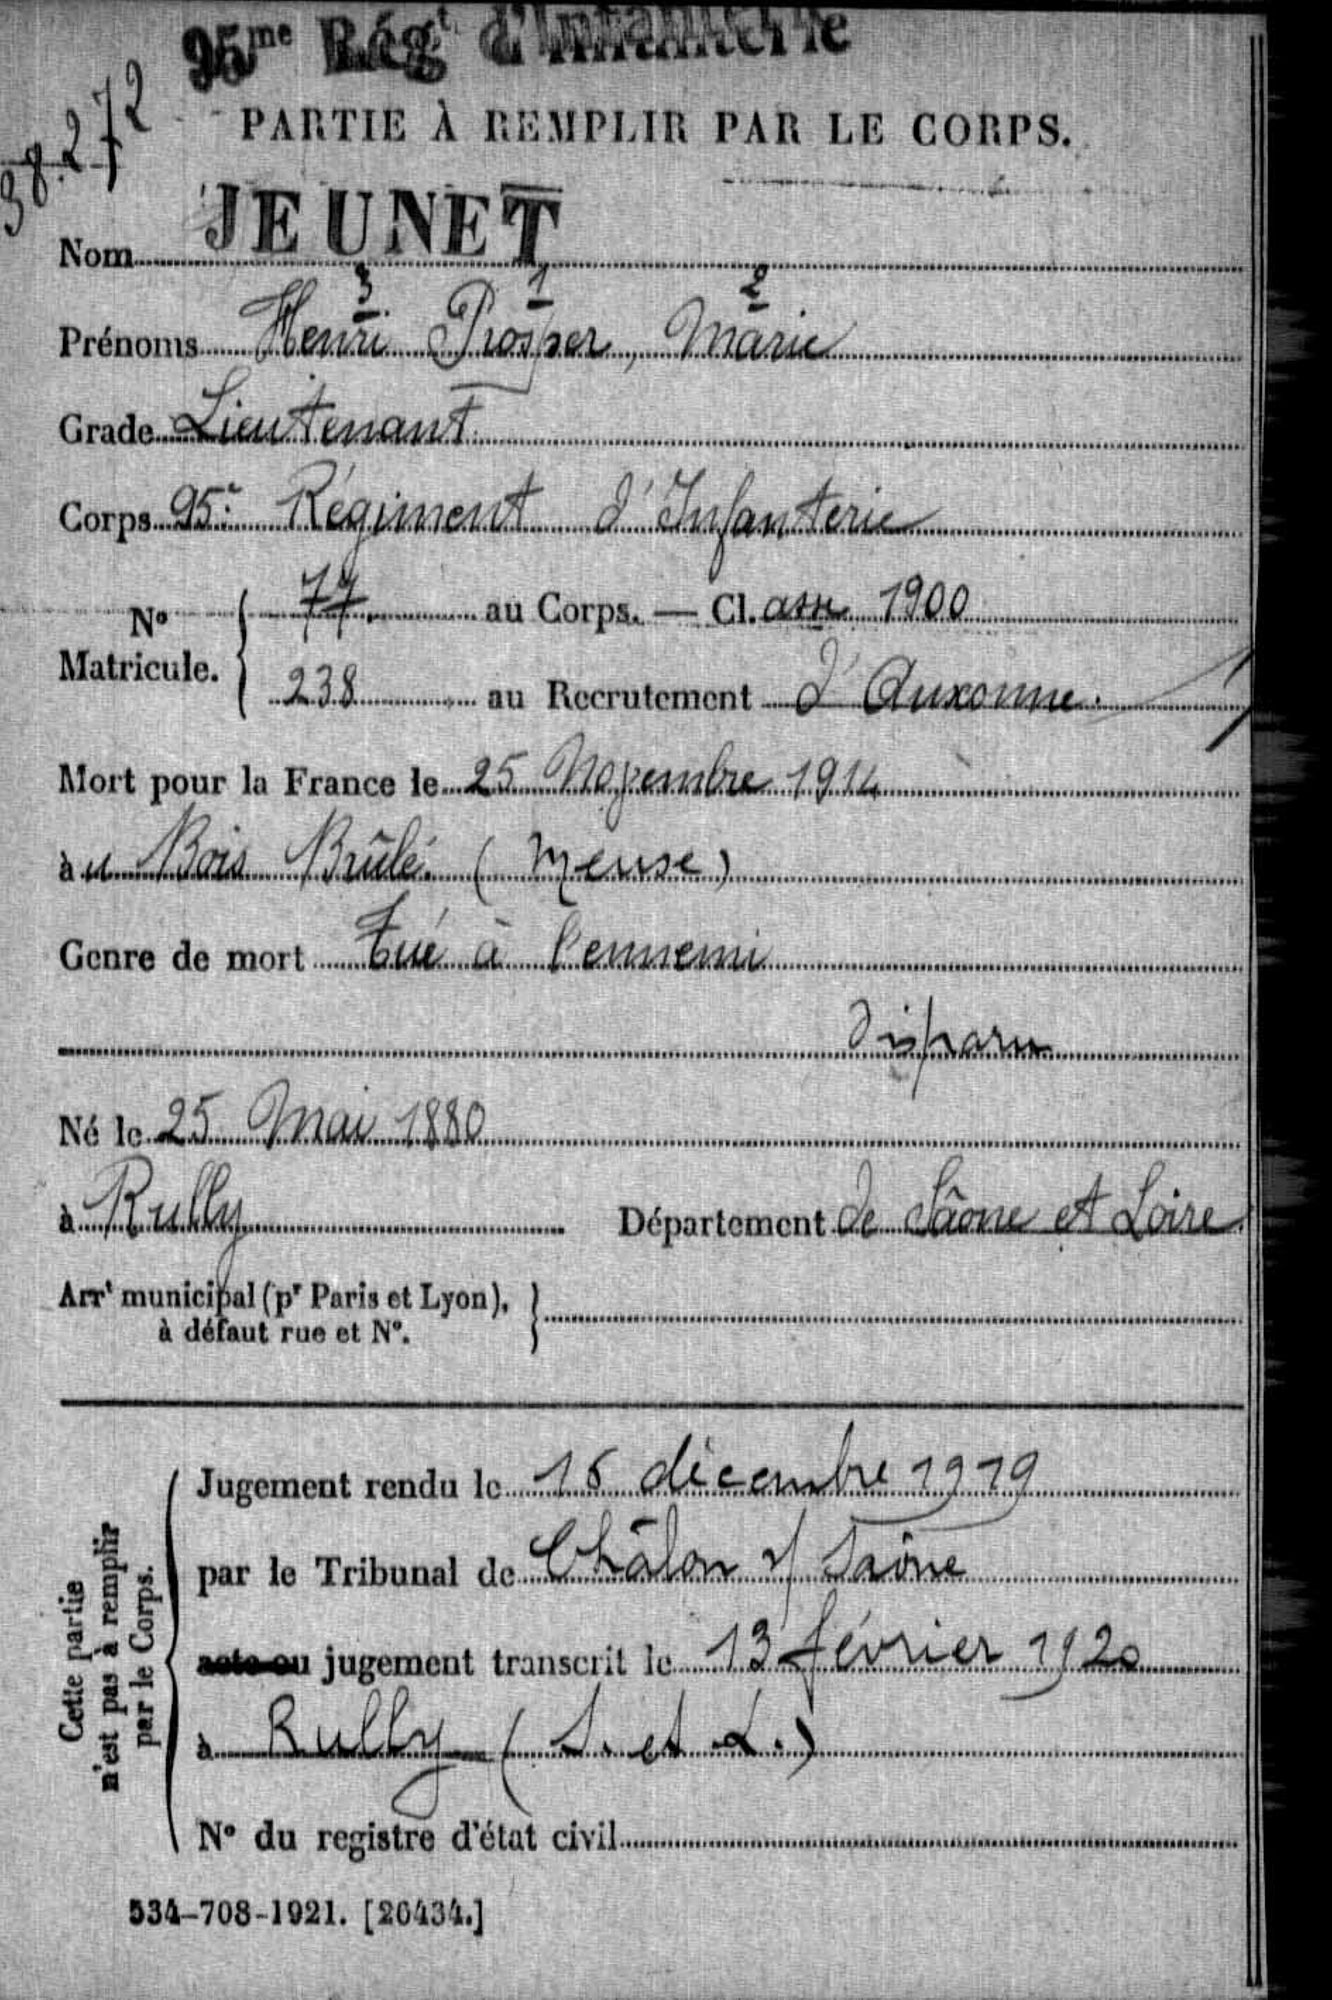 95me Régt d'Infanterie
38.272
PARTIE À REMPLIR PAR LE CORPS.
Nom JEUNET
3 1 2
Prénoms Henri Prosper, Marie
Grade Lieutenant
Corps 95e Régiment d'Infanterie
No Matricule. { 77 au Corps. — Cl. asse 1900
238 au Recrutement d'Auxonne.
Mort pour la France le 25 Novembre 1914
àu Bois Brûlé. (Meuse)
Genre de mort Tué à l'ennemi
disparu
Né le 25 Mai 1880
à Rully Département de Saône et Loire
Arrt municipal (pr Paris et Lyon), }
à défaut rue et No.
Cette partie
n'est pas à remplir
par le Corps.
Jugement rendu le 16 décembre 1919
par le Tribunal de Châlon s/ Saône
acte ou jugement transcrit le 13 février 1920
à Rully (S. et L.)
No du registre d'état civil
534-708-1921. [26434.]